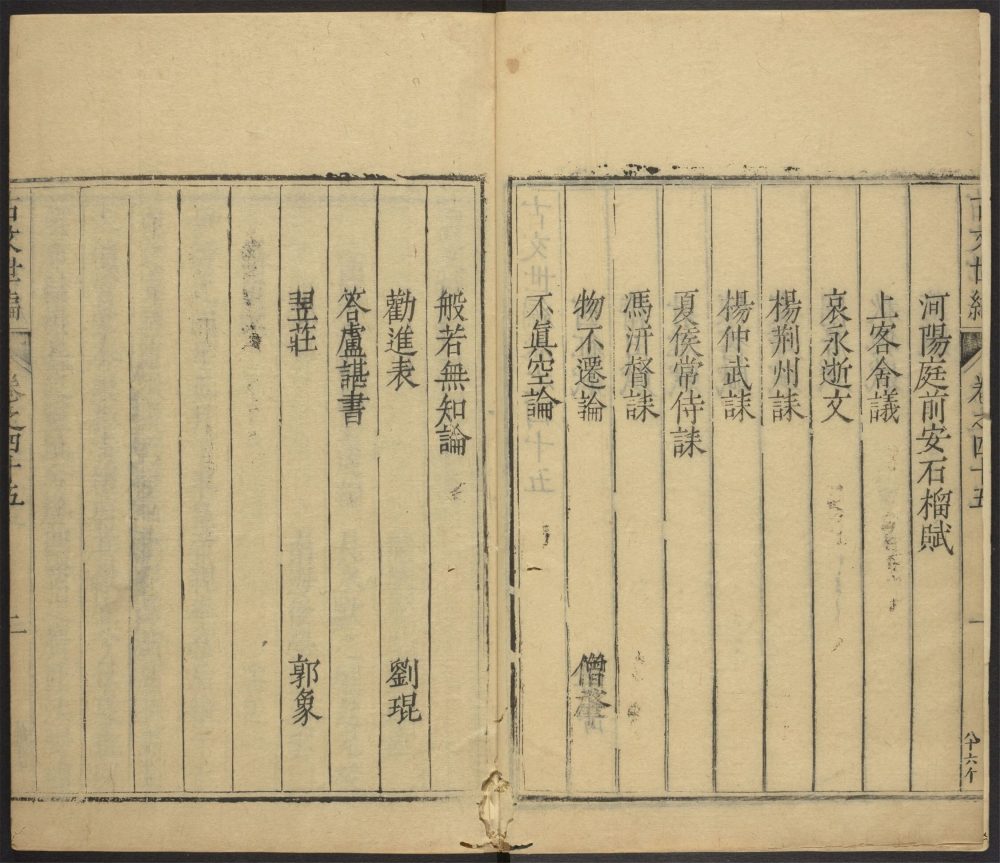 古文世編
卷之四十五
一
河陽庭前安石榴賦
上客舍議
哀永逝文
楊荆州誄
楊仲武誄
夏侯常侍誄
馮汧督誄
物不遷論 僧肇
不眞空論
般若無知論
勸進表 劉琨
答盧諶書
郭象
古文世編
卷之四十五
二